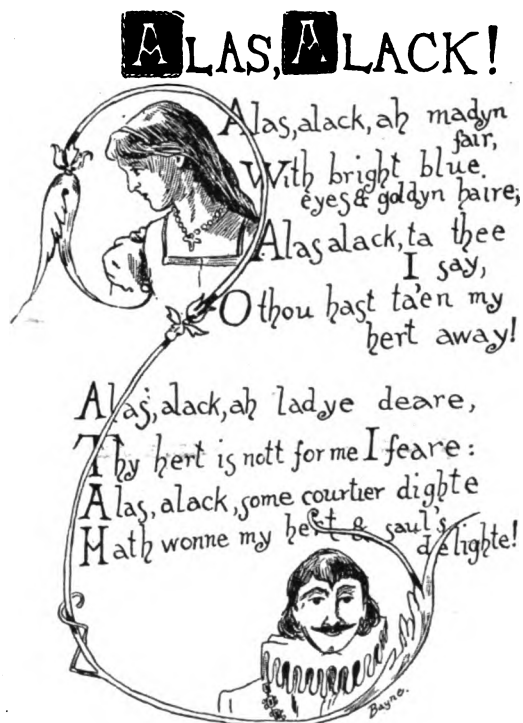 ALAS, ALACK!
Alas, alack, ah madyn
fair,
With bright blue
eyes & goldyn haire;
Alas alack, ta thee
I say,
O thou hast ta'en my
hert away!
Alas, alack, ah ladye deare,
Thy hert is nott for me I feare:
Alas, alack, some courtier dighte
Hath wonne my hert & saul's
delighte!
Bayne.